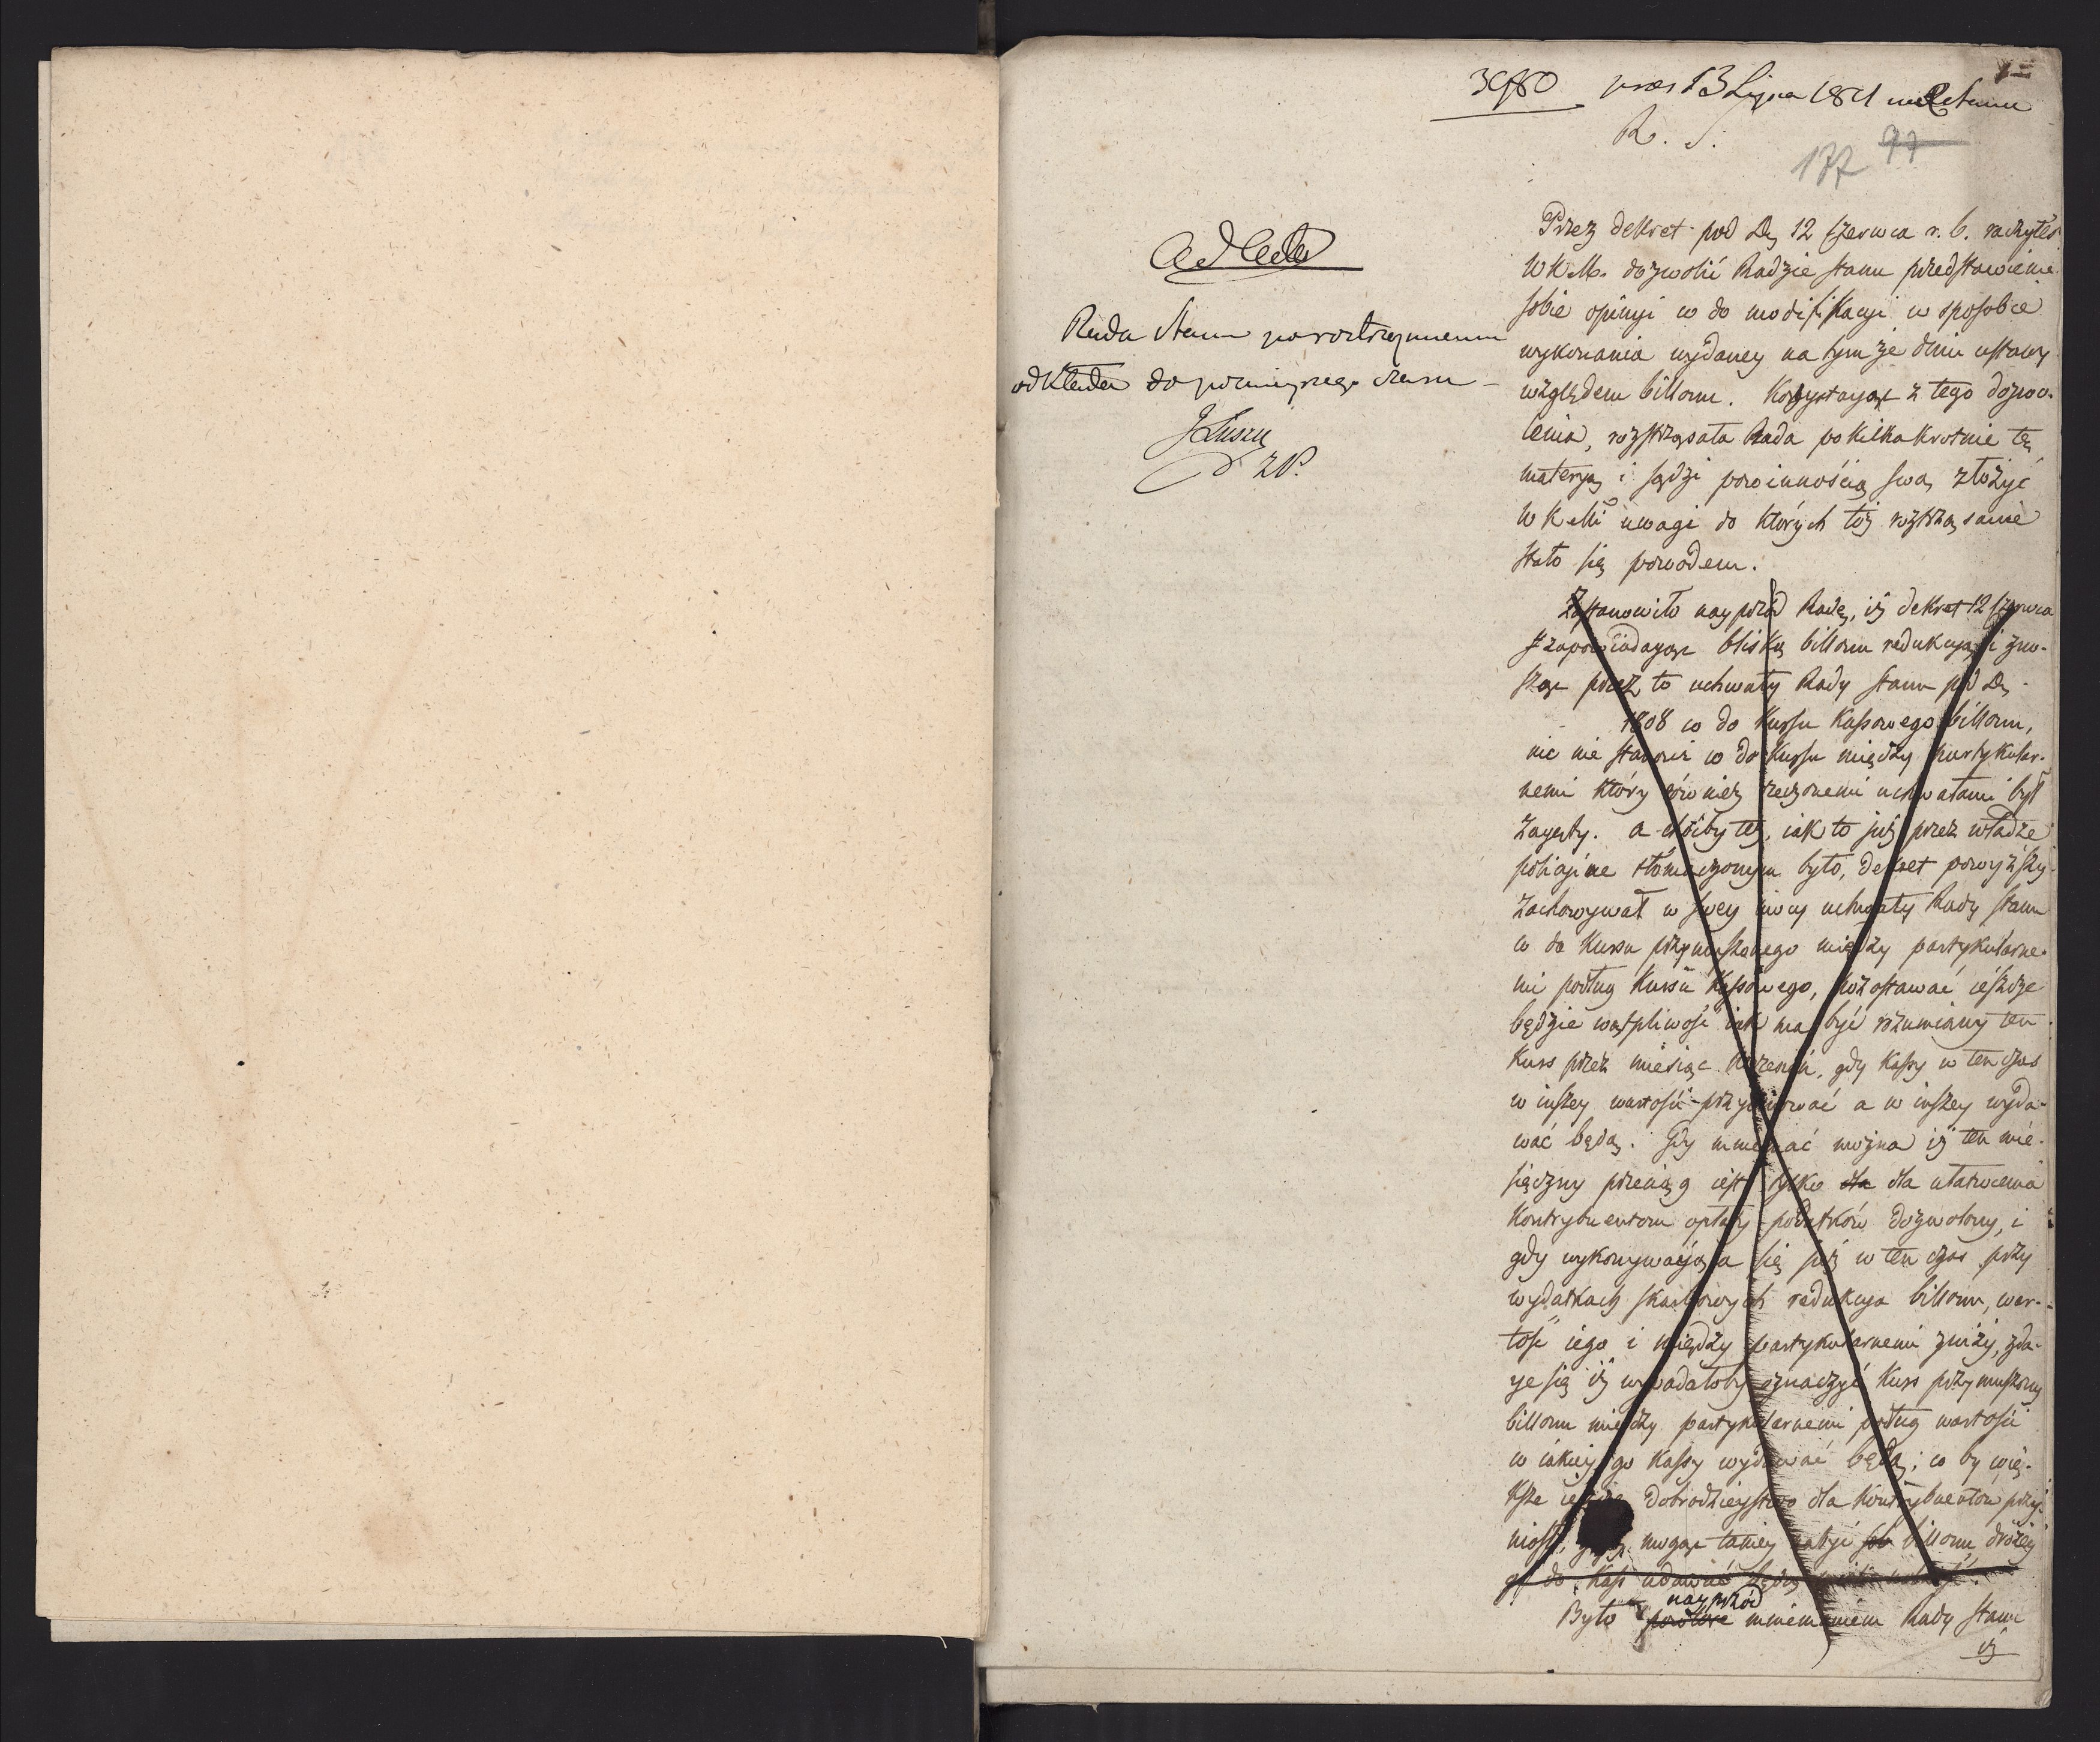 3980 praes 13 Lipca 1811 na R Stanu
R. S.
177 97
Ad Acta
Rada Stanu po roztrząśnieniu
odkłada do poznieyszego czasu –
J Łuszcz
Przez dekret pod D. 12 Czerwca r. b. raczyłeś
WKM. dozwolić Radzie stanu przedstawienie
sobie opinyi co do modifikacyi w sposobie
wykonania wydaney na tymże dniu ustawy
względem billonu. Korzystaiąc z tego dozwo-
lenia, rozstrząsała Rada po kilkakrotnie tę
materyą i sądzi powinnością swą złożyć
WKMci uwagi do których toż roztrząsanie
stało się powodem.
Zastanowiło nayprzód Radę, iż dekret 12 Czerwca
zapowiadaiąc bliską billonu redukcyą i zno-
sząc przez to uchwały Rady stanu pod D.
1808 co do kursu kassowego billonu,
nic nie stanowi co do kursu między partykular-
nemi który również rzeczonemi uchwałami był
zaięty. a choćby też, iak to już przez władze
policyine tłómaczonym było, dekret powyższy
zachowywał w swey mocy uchwały Rady stanu
co do kursu przymuszonego między partykularne-
mi podług kursu kassowego, pozostawać ieszcze
będzie wątpliwość iak ma być rozumiany ten
kurs przez miesiąc Wrzesień, gdy kassy w ten czas
w inszey wartości przyimować a w inszey wyda-
wać będą. Gdy mniemać można iż ten mie-
sięczny przeciąg iest tylko dla dla ułatwienia
kontrybuentom opłaty podatków dozwolony, i
gdy wykonywaiąca się już w ten czas przy
wydatkach skarbowych redukcya billonu, war-
tość iego i między partykularnemi zniży, zda-
ie się iż wypadałoby oznaczyć kurs przymuszony
billonu między partykularnemi podług wartości
w iakiey go kassy wydawać będą; co by wię-
ksze ieszcze dobrodzieystwo dla kontrybuentów przy-
niosło, gdyż mogąc taniey nabyć billonu drożey
go do kass udawać będą
nayprzód
Było powtóre mniemaniem Rady stanu
iż